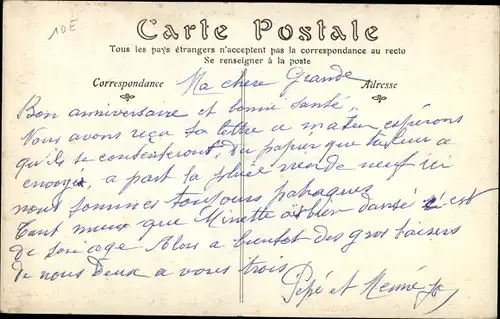 10E
Carte Postale
Tous les pays étrangers n'acceptent pas la correspondance au recto
Se renseigner à la poste
Correspondance
Adresse
Ma chère Grande
Bon anniversaire et bonne santé,
Nous avons reçu sa lettre ce matin espérons
qu'ils se contenteront du papier que tu leur a
envoyé, a part la pluie rien de neuf ici
nous sommes toujours
Tant mieux que Minette a bien dansé c'est
de son age Alors a bientot des gros baisers
de nous deux a vous trois
Pépé et Mémé